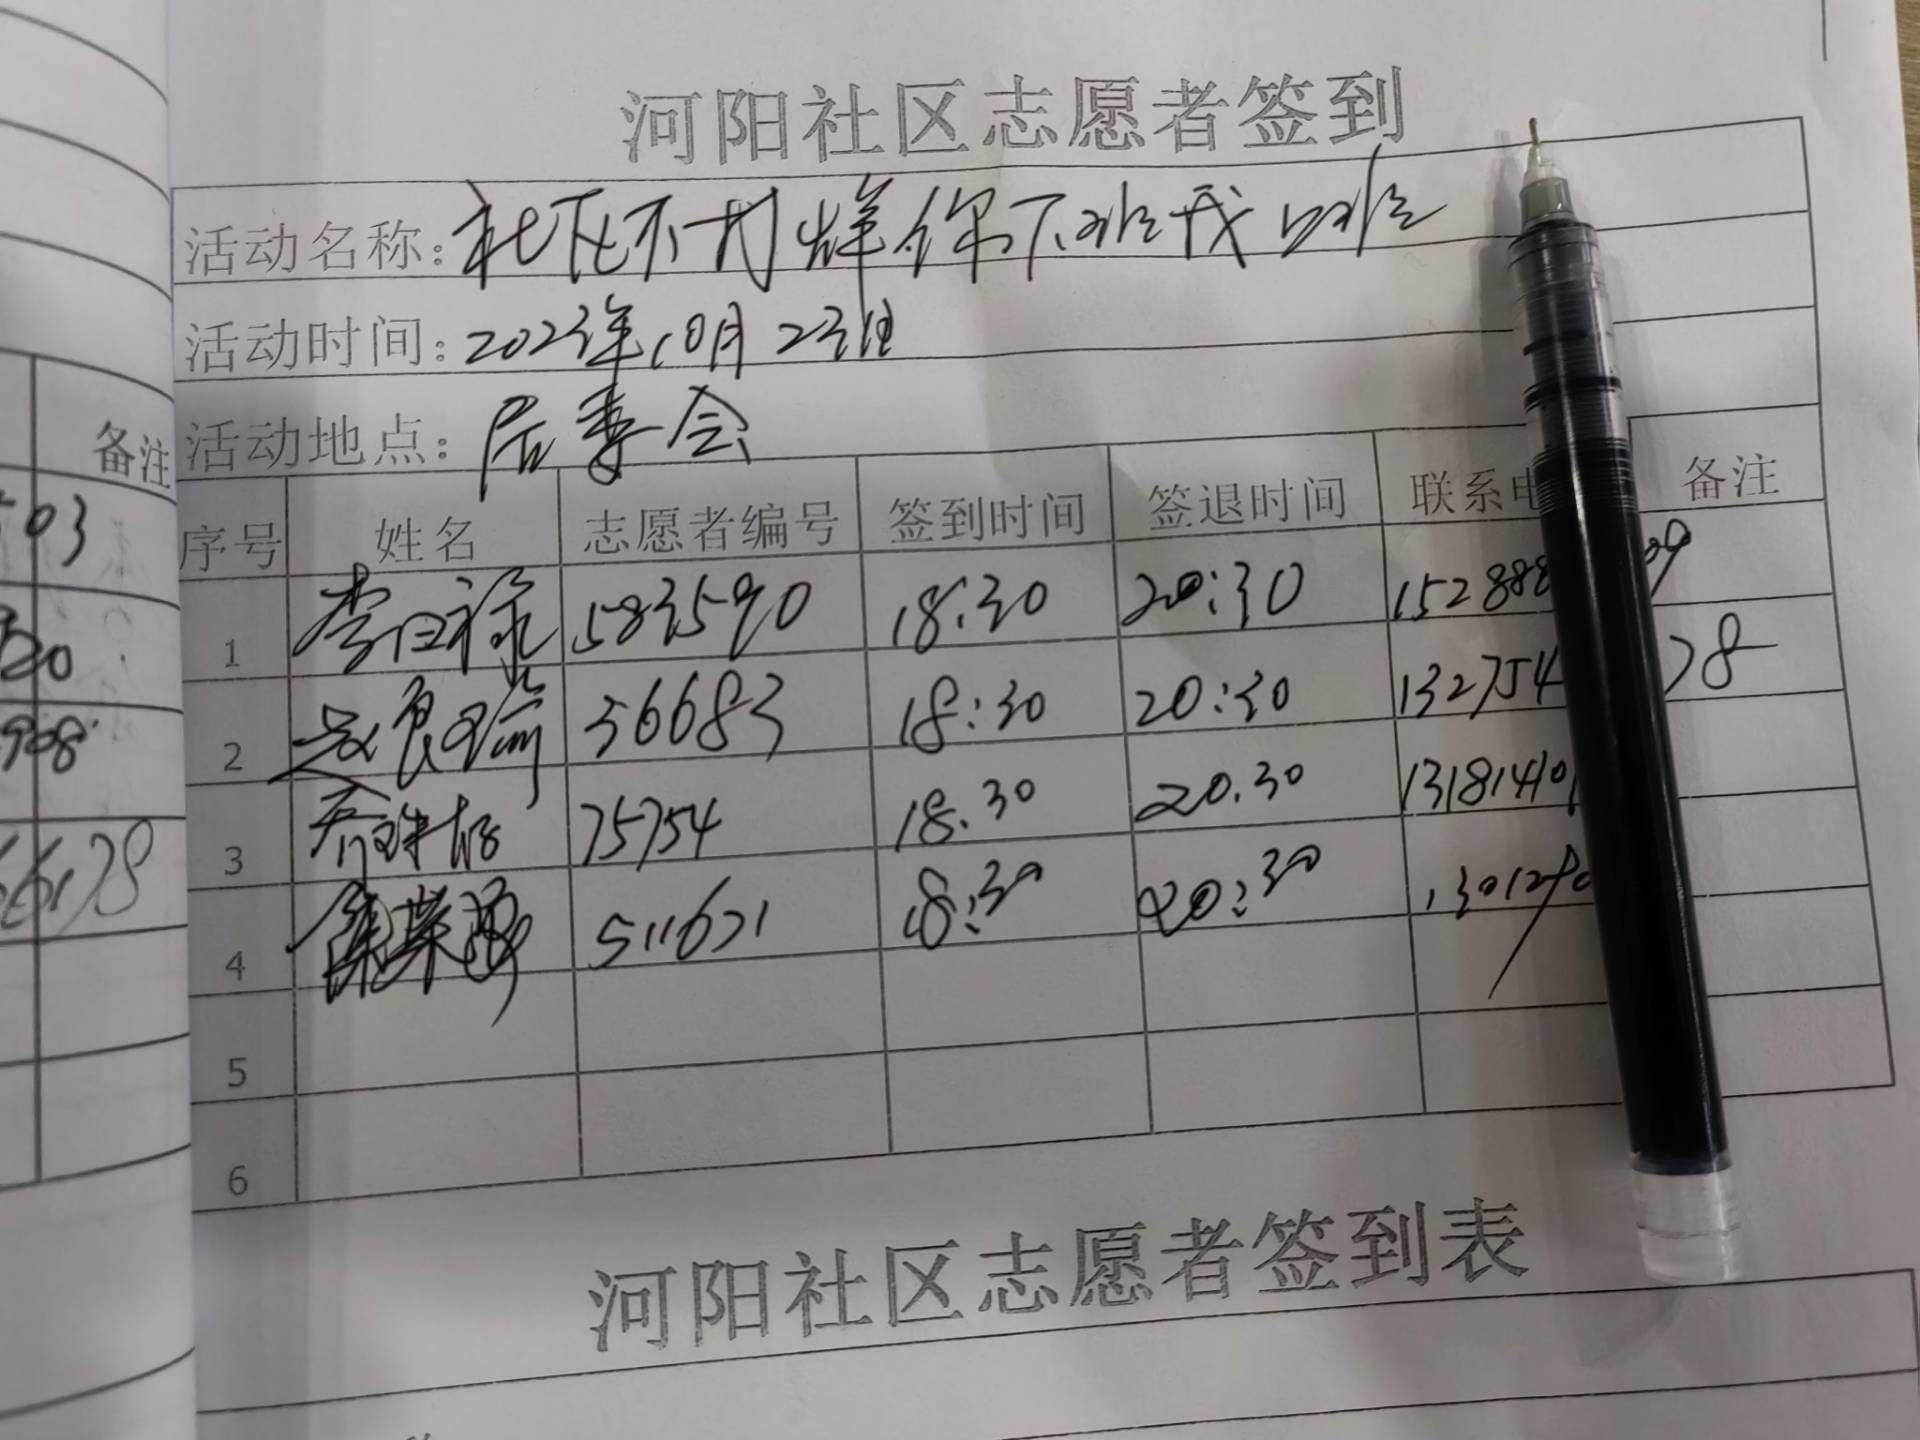 河阳社区志愿者签到
活动名称：社区不打烊你下班我上班
活动时间：2023年10月23日
活动地点：居委会
序号 姓名 志愿者编号 签到时间 签退时间 联系电 备注
1 583590 18:30 20:30 152888 09
2 36683 18:30 20:30 132754 78
3 75754 18.30 20.30 13181410
4 511671 18:30 20:30 130129
5
6
河阳社区志愿者签到表
备注
03
20
908
66178